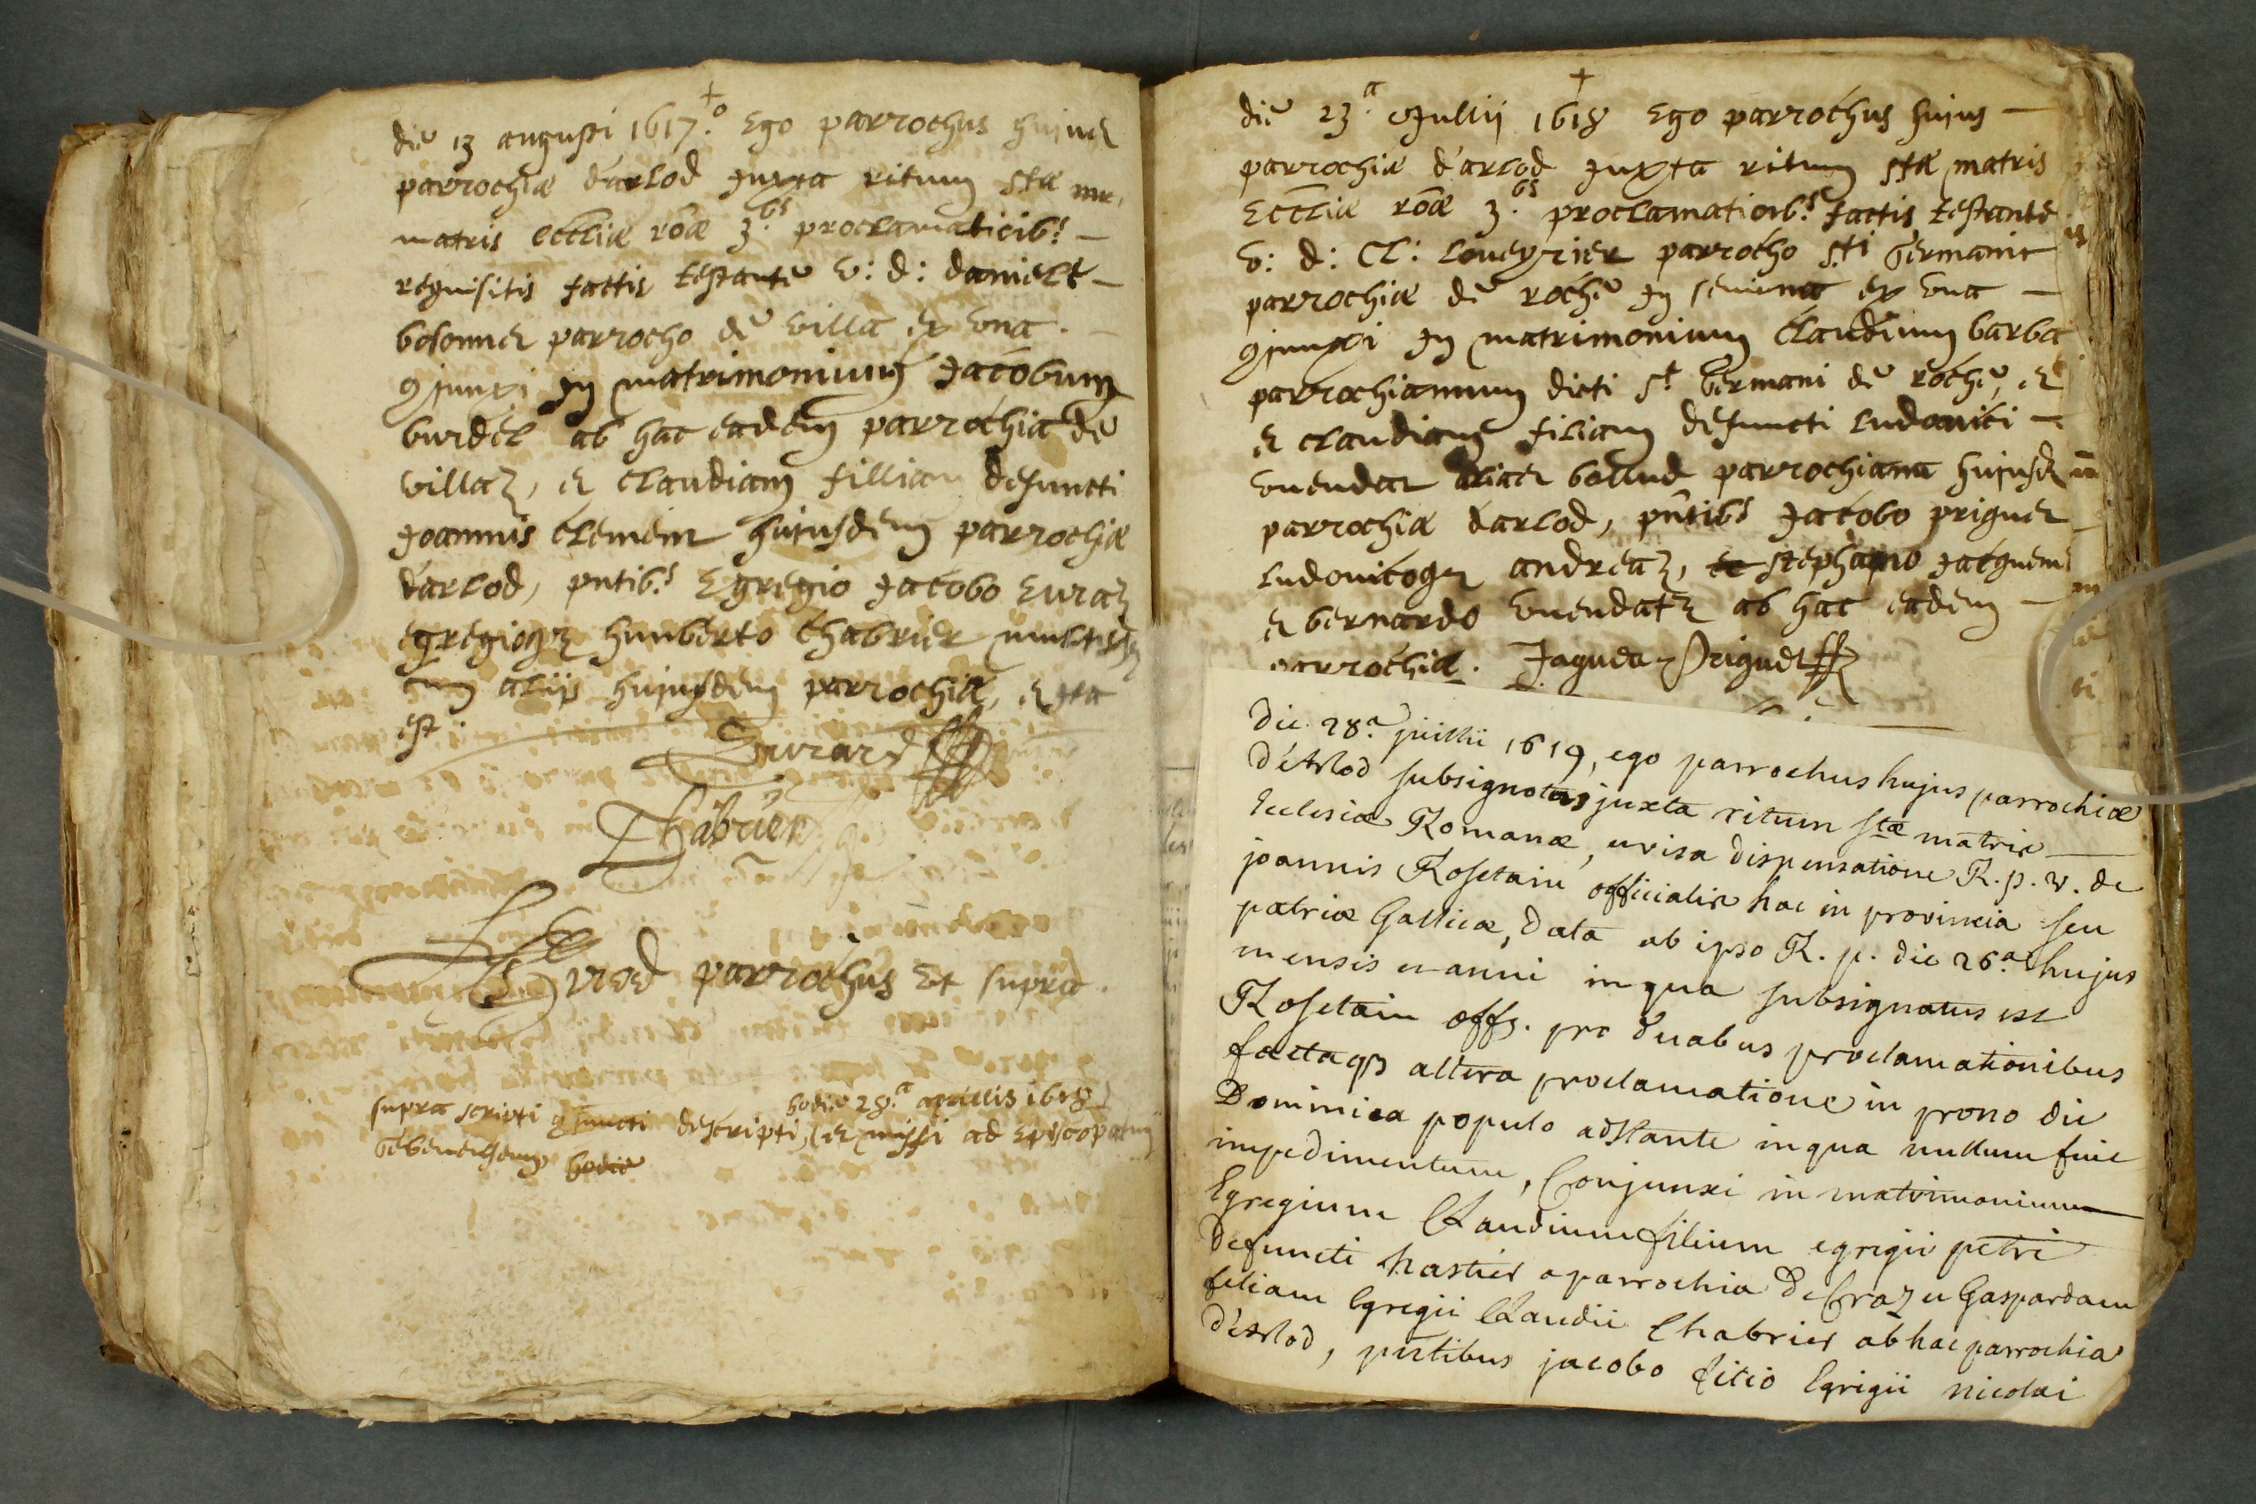 +
die 13 augusti 1617.º Ego parrochus hujus
parrochiæ d'arlod Juxta ritum stæ mr.
matris eccliæ roæ 3.bs proclamatioib.s
requisitis factis testante v: d: daniele
bosonnet parrocho de villa ex una.
9junxi In matrimonium Jacobum
burdel ab hac eadem parrochia de
villaz, et claudiam filliam defuncti
Joannis clement hujusdem parrochiæ
d'arlod, pntib.s Egregio Jacobo Eurard
egregioq3 humberto Chabrier multisq3
cum aliis hujusdem parrochiæ, et Ita
est
Eurard
Chabrier
parrochus Et supra.
hodie 28.a aprilis 1618
supra scripti 9juncti descripti, et missi ad Episcopatum
Gebenensem hodie
+
die 23.a Jullii 1618 Ego parrochus hujus
parrochiæ d'arlod Juxta ritum stæ matris
Eccliæ roæ 3.bs proclamatioib.s factis testante
v: d: Cl: loueyrier parrocho s.ti Germanii
parrochiæ de roche In ex una
9junxi In matrimonium Claudium barba
parrochianum dicti s.t Germani de roche, et
et claudiam filiam defuncti ludovici
vuendat alias parrochiana hujusd
parrochiæ d'arlod, pntib.s Jacobo priguet
ludovicoq3 andreaz, et stephano Jacquemet
et bernardo vuendatz ab hac eadem
parrochia. Jaques Priguet
Die 28.a juillii 1619, ego parrochus hujus parrochiæ
D'Arlod subsignatus juxta ritum stæ matris
Ecclesiæ Romanæ, et visa dispensatione R. p. v. de
joannis Rosetain officialis hac in provincia seu
patriæ Gallicæ, Data ab ipso R. p. die 26.a hujus
mensis et anni in qua subsignatus est
Rosetain offs. pro duabus proclamationibus
factaq3 altera proclamatione in prono die
Dominica populo adstante in qua nullum fuit
impedimentum, Conjunxi in matrimonium
Egregium Claudium filium egregii petri
Defuncti hastier a parrochia De Craz et Gaspardam
filiam Egregii Claudii Chabrier ab hac parrochia
D'Arlod, pntibus jacobo filio Egrigii nicolai